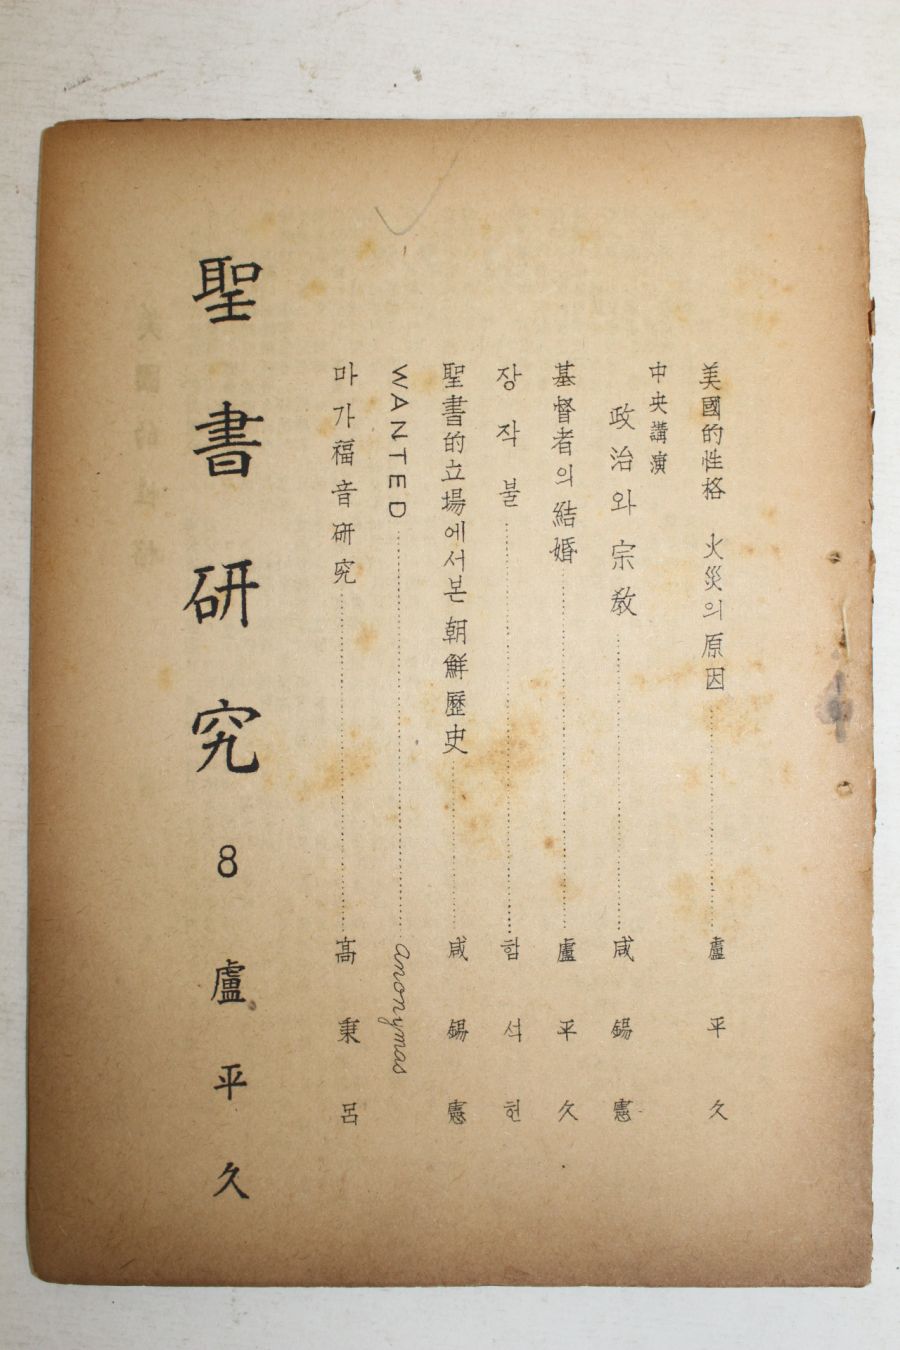 美國的性格 火災의原因 盧平久
中央講演
政治와宗教 咸錫憲
基督者의結婚 盧平久
장작불 함석헌
聖書的立場에서본朝鮮歷史 咸錫憲
WANTED anonymas
마가福音研究 高秉呂
聖書研究 8 盧平久